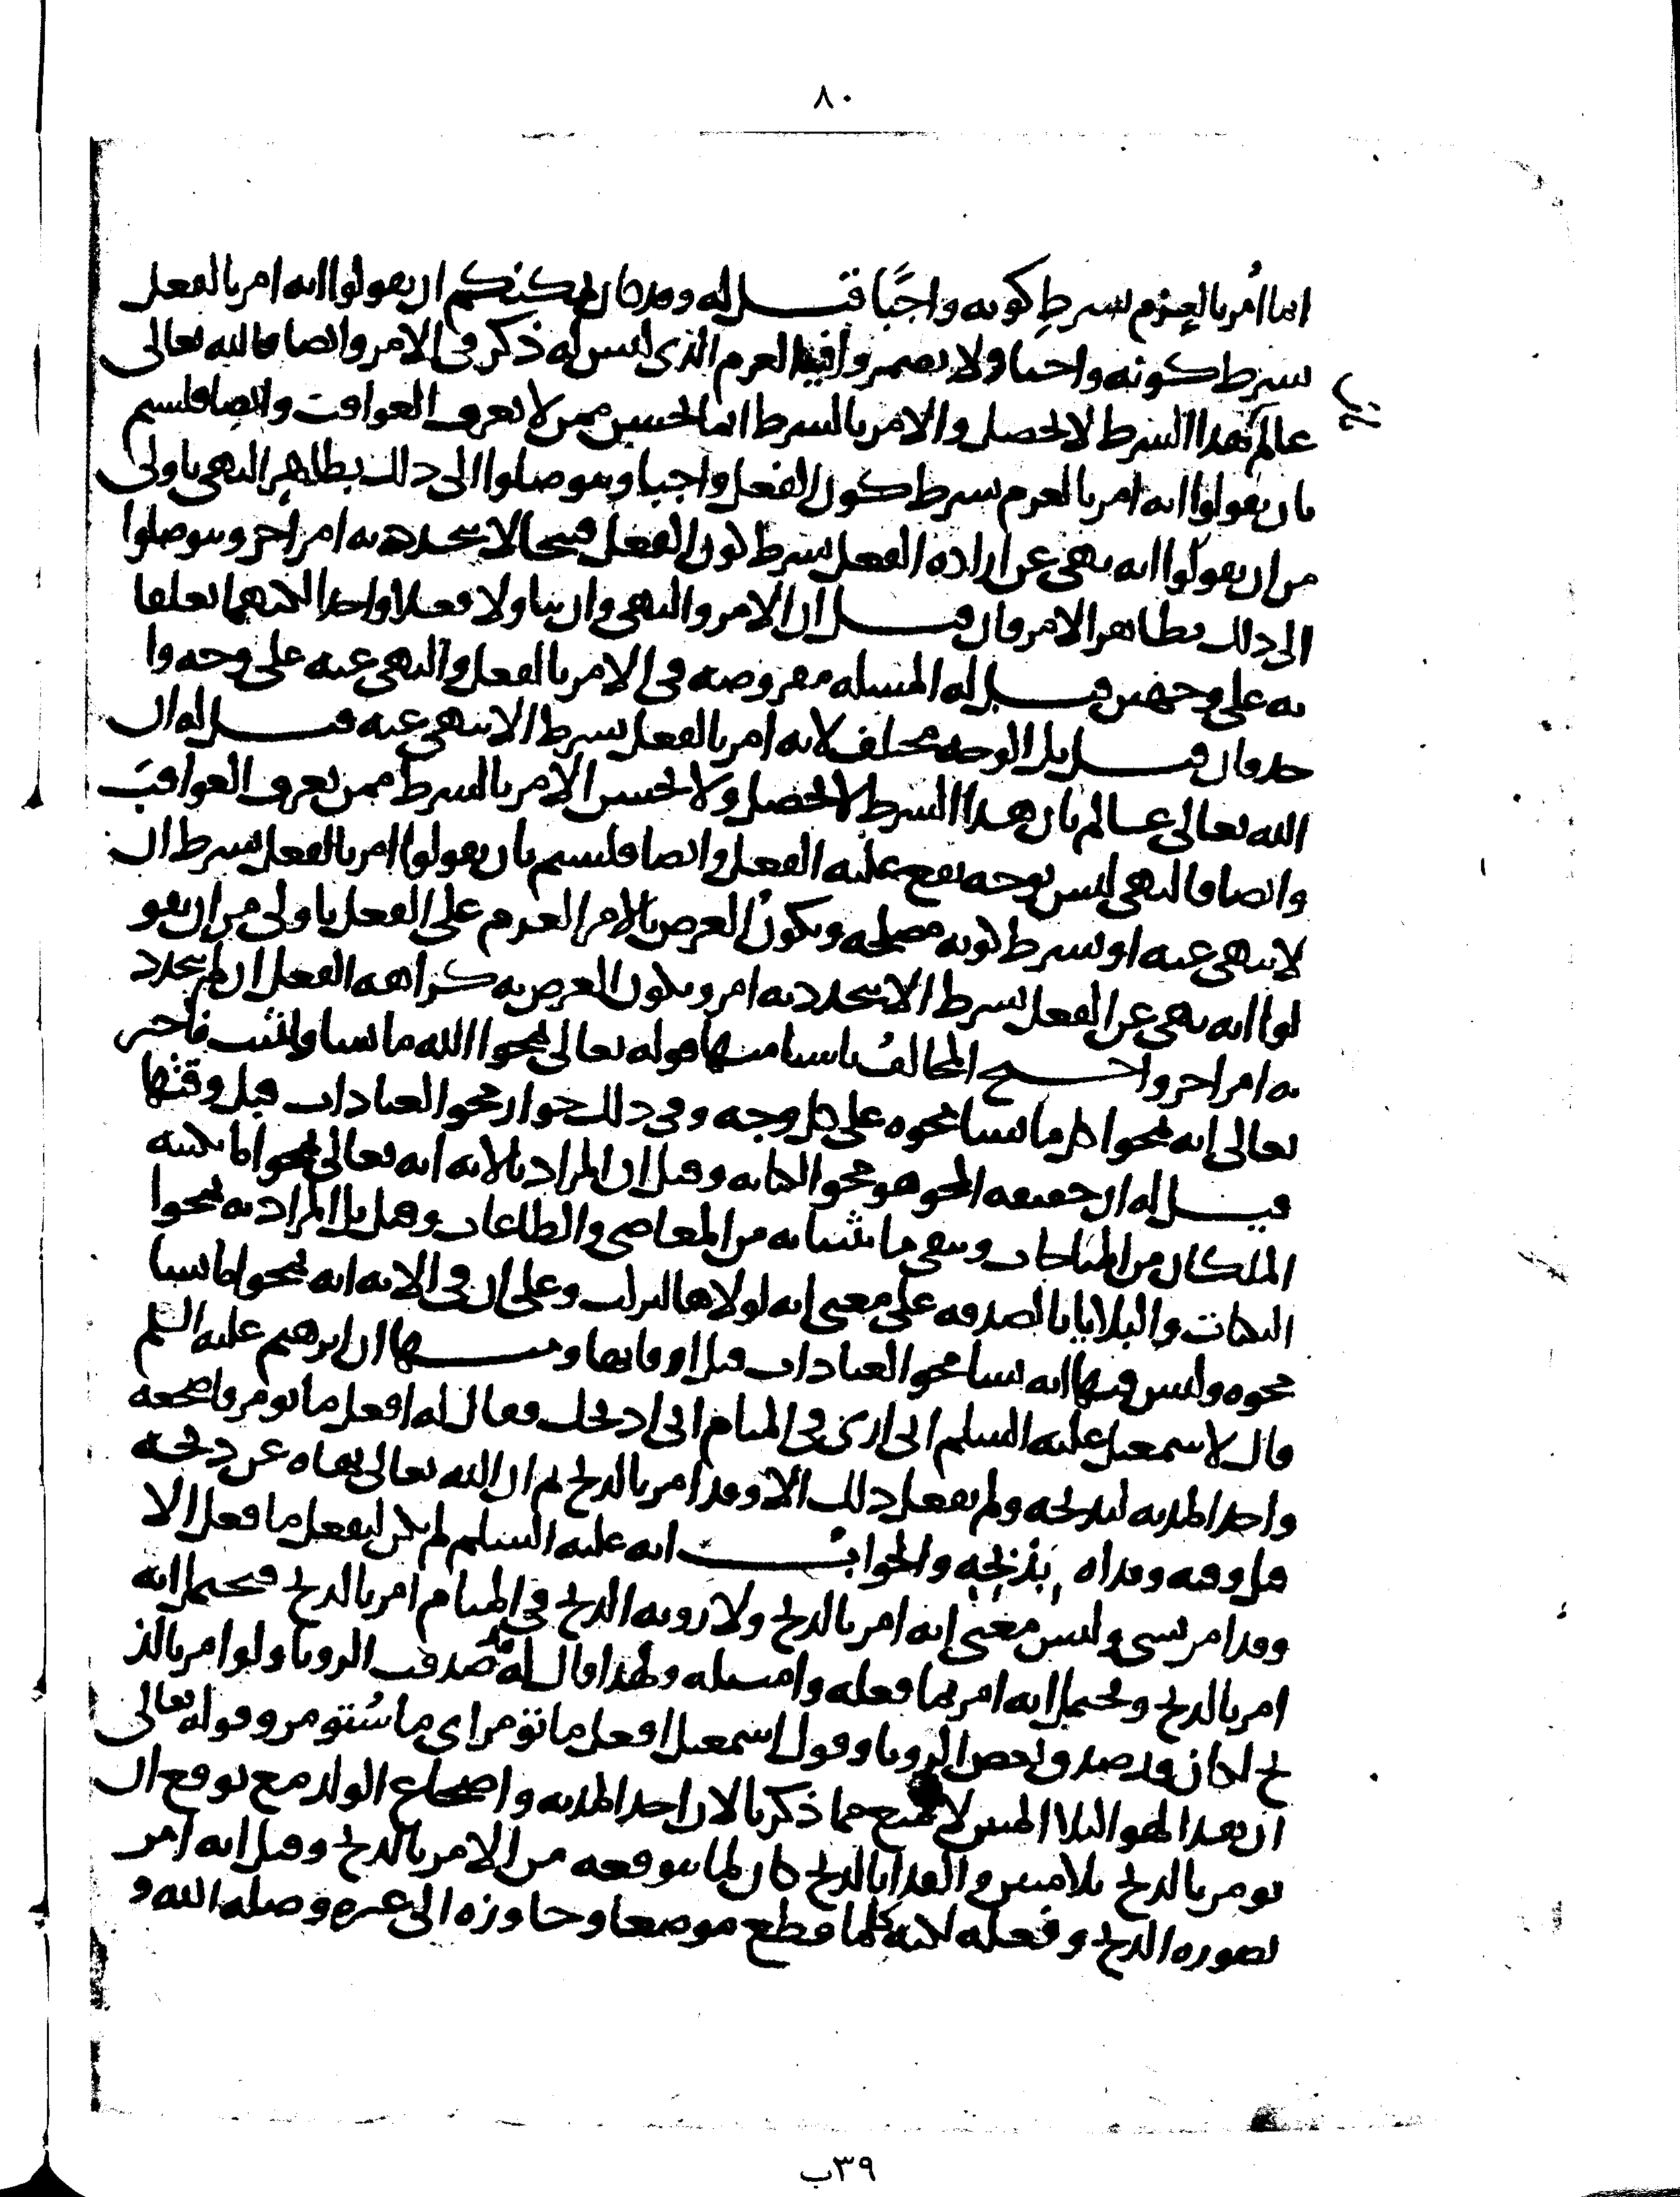 ٨٠
انما أُمر بالعزم بشرطِ كونه واجبًا قيل له وقد كان يمكنكم ان يقولوا انه امر بالفعل
بشرط كونه واحبا ولا يضمروا فيه العزم الذى ليس له ذكر فى الامر وايضا فالله تعالى
عالم بهذا الشرط لا يحصل والامر بالشرط انما يحسن ممن لا يعرف العواقب وايضا فلستم
بان يقولوا انه امر بالعزم بشرط كون الفعل واجبا ويتوصلوا الى ذلك بظاهر النهى باولى
من ان يقولوا انه نهى عن اراده الفعل بشرط كون الفعل قبيحا لا يتجدد به امر اخر ويتوصلوا
الى ذلك بظاهر الامر فان قيل ان الامر والنهى وان تناولا فعلا واحدا لكنهما تعلقا
به على وجهين قيل له المسله مفروضه فى الامر بالفعل والنهى عنه على وجه وا
حد فان قيل بل الوجه مختلف لانه امر بالفعل بشرط الا ينهى عنه قيل له ان
الله تعالى عالم بان هذا الشرط لا يحصل ولا يحسن الامر بالشرط ممن يعرف العواقبَ
وايضا فالنهى ليس بوجه يقع عليه الفعل وايضا فلستم بان يقولوا امر بالفعل بشرط ان
لا ينهى عنه او بشرط كونه مصلحه ويكون الغرض بالامر العزم على الفعل باولى من ان يقو
لوا انه نهى عن الفعل بشرط الا يتجدد به امر ويكون الغرض به كراهه الفعل ان لم يتجدد
به امر اخر واحتج المخالفُ باشيا منها قوله تعالى يمحوا الله ما يشا ويثبت فاخبر
تعالى انه يمحوا كل ما يشا محوه على كل وجه وفى ذلك جواز محو العبادات قبل وقتها
قيل له ان حقيقه المحو هو محو الكتابه وقيل ان المراد بالايه انه تعالى يمحوا ما يكتبه
الملكان من المباحات ويبقى ما يشابه من المعاصى والطاعات وقيل بل المراد به يمحوا
النكبات والبلايا بالصدقه على معنى انه لولاها لنزلت وعلى ان فى الايه انه يمحوا ما يشا
محوه وليس فيها انه يشا محو العبادات قبل اوقاتها ومنها ان ابرهيم عليه السلم
قال لاسمعيل عليه السلم انى ارى فى المنام انى اذبحك فقال له افعل ما تومر فاضجعه
واخذ المديه ليذبحه ولم يفعل ذلك الا وقد امر بالذبح ثم ان الله تعالى نهاه عن ذبحه
قبل وقته وفداه بِذبْحٍ والجوابُ انه عليه السلم لم يكن ليفعل ما فعل الا
وقد امر بشى وليس معنى انه امر بالذبح ولا رويه الذبح فى المنام امر بالذبح فيحتمل انه
امر بالذبح ويحتمل انه امر بما فعله وامتثله ولهذا قال له قد صدقت الرويا ولو امر بالذ
بح لكان قد صدق بعض الرويا وقول اسمعيل افعل ما تومر اى ما سُتومر وقوله تعالى
ان هذا لهو البلا المبين لا يمنع مما ذكرنا لان اخذ المديه واضجاع الولد مع توقع ان
يومر بالذبح بلا مبين والفدا بالذبح كان لما يتوقعه من الامر بالذبح وقيل انه امر
بصوره الذبح وفعله لكنه كلما قطع موضعا وجاوزه الى غيره وصله الله و
٣٩ب